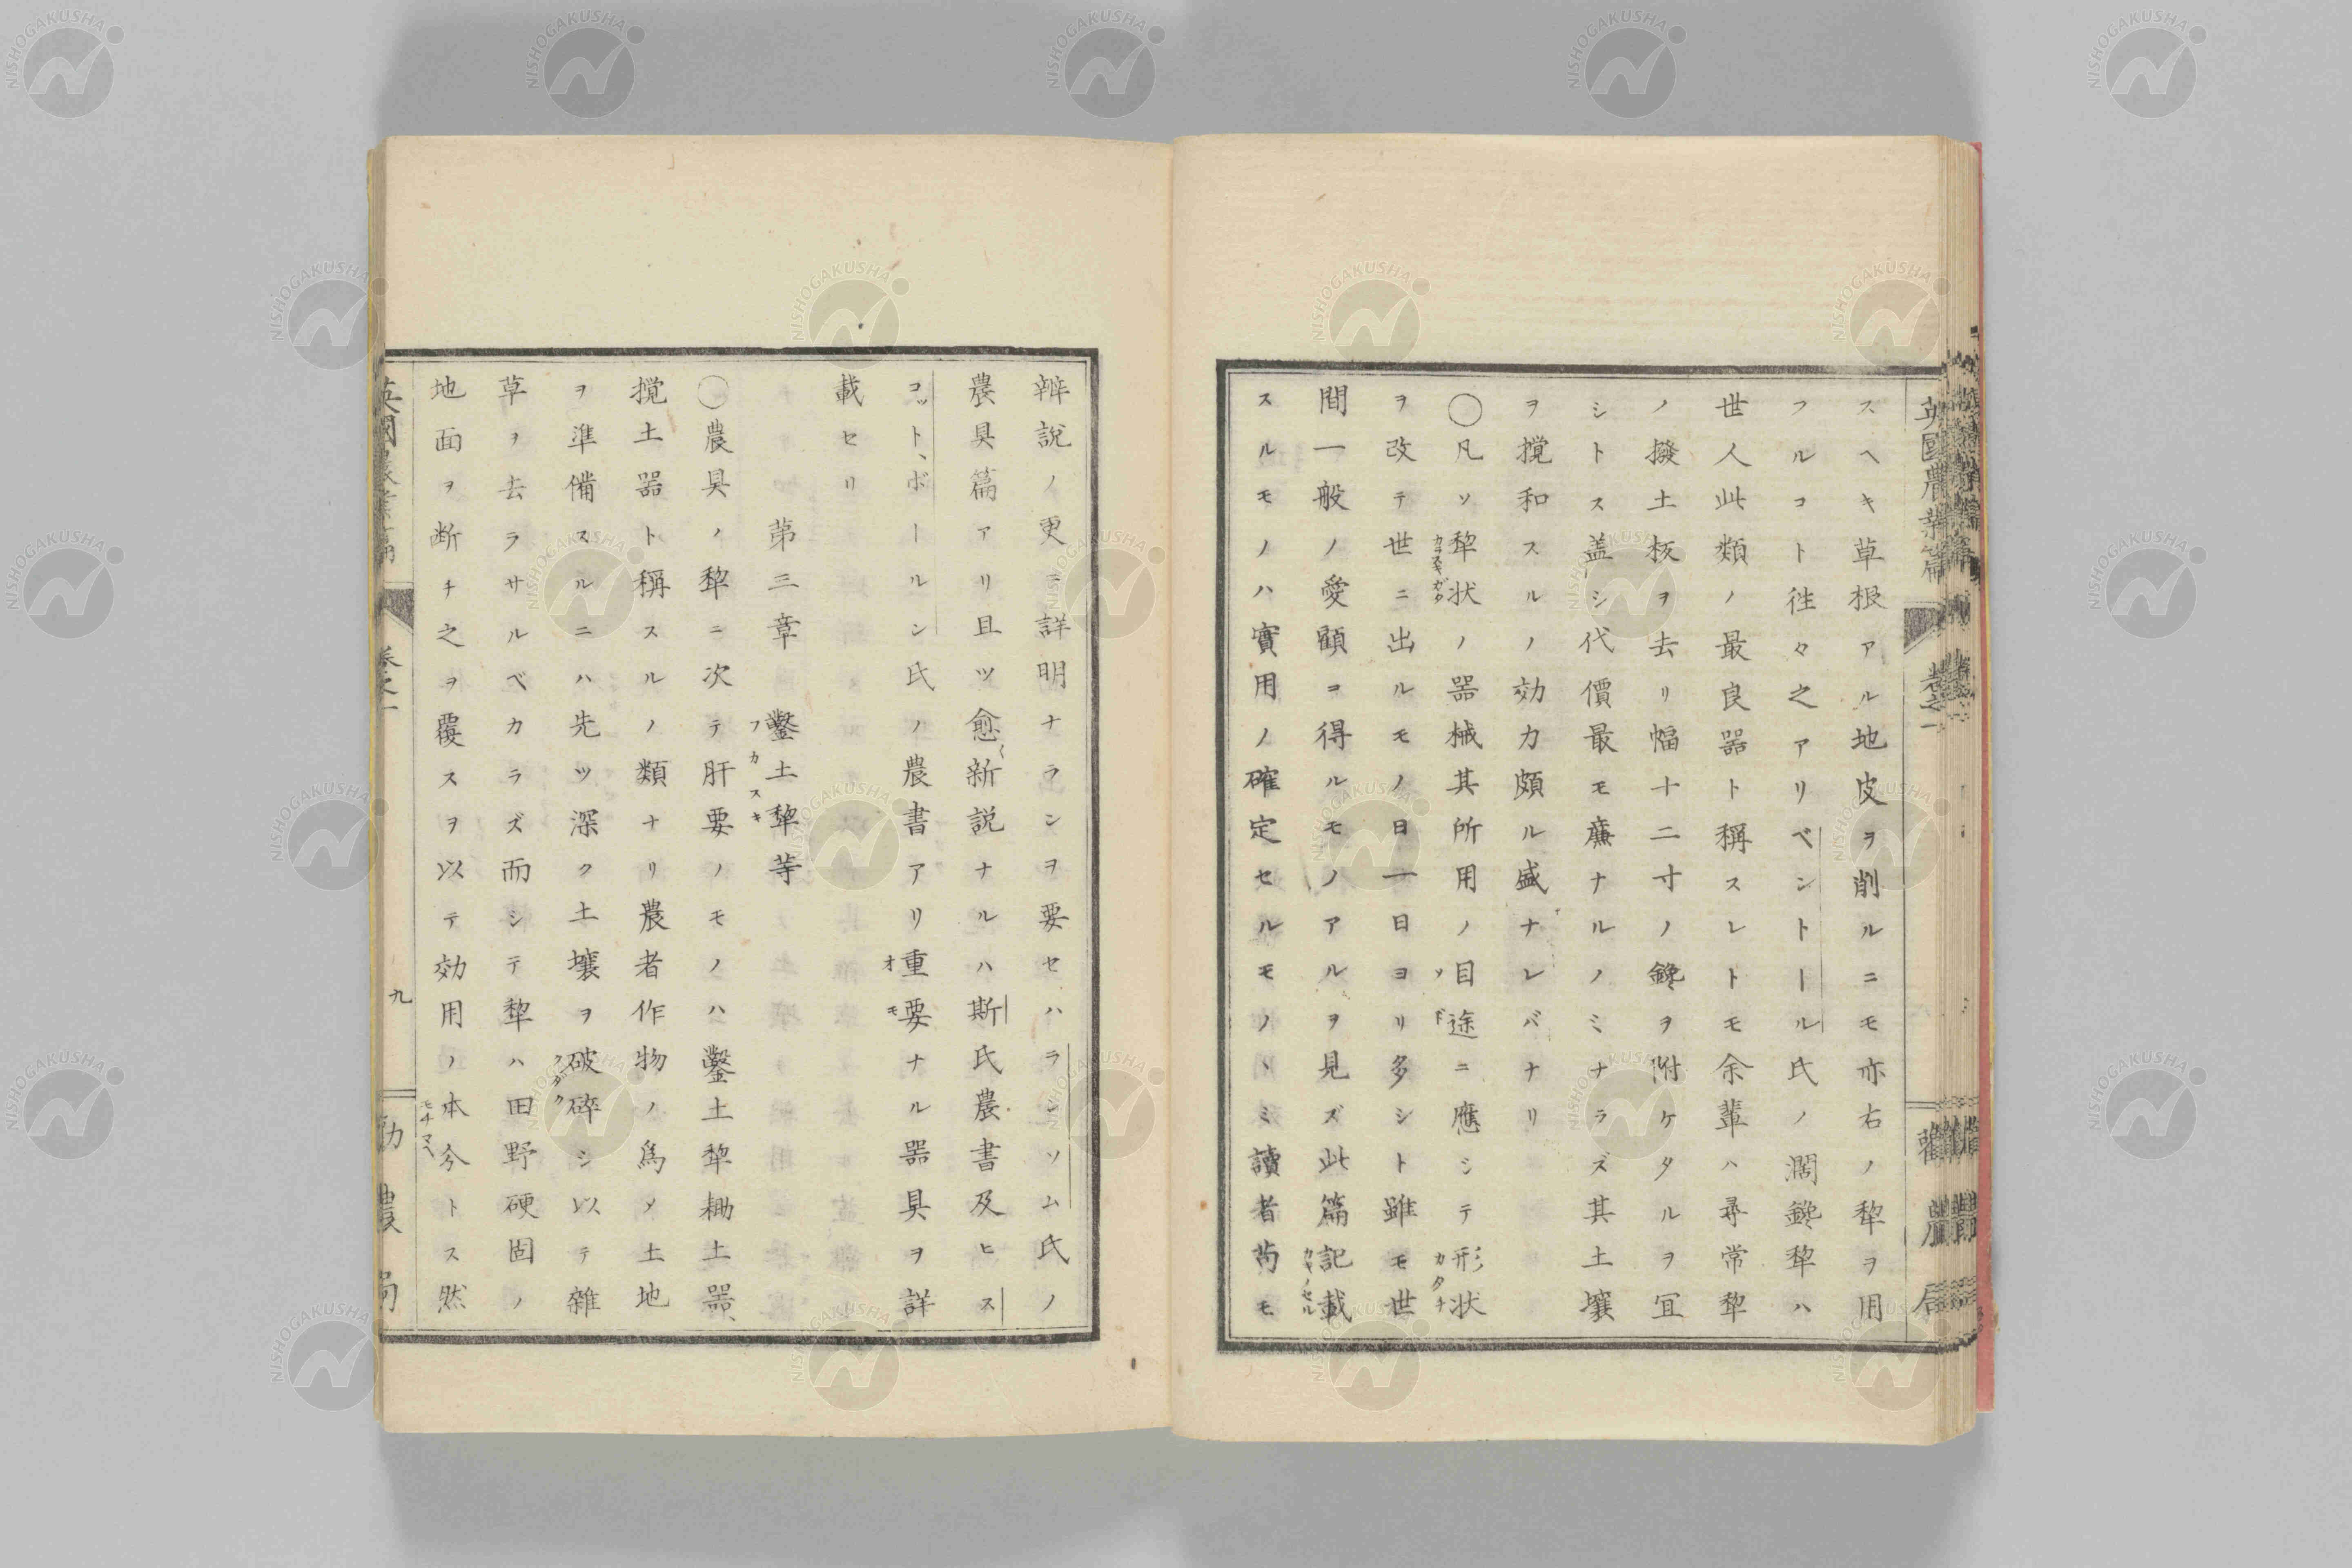 英國農業篇 卷之一 勸農局
スヘキ草根アル地皮ヲ削ルニモ亦右ノ犂ヲ用
フルコト徃々之アリベントール氏ノ濶鑱犂ハ
世人此類ノ最良器ト稱スレトモ余輩ハ尋常犂
ノ撥土板ヲ去リ幅十二寸ノ鑱ヲ附ケタルヲ冝
シトス盖シ代價最モ廉ナルノミナラズ其土壤
ヲ攪和スルノ効力頗ル盛ナレバナリ
〇凡ソ犂状ノ器械其所用ノ目途ニ應シテ形状
ヲ改テ世ニ出ルモノ日一日ヨリ多シト雖モ世
間一般ノ愛顧ヲ得ルモノアルヲ見ズ此篇記載
スルモノハ實用ノ確定セルモノヽミ讀者苟モ
辨説ノ更ニ詳明ナランヲ要セハランソム氏ノ
農具篇アリ且ツ愈新説ナルハ斯氏農書及ヒス
コット、ボールン氏ノ農書アリ重要ナル器具ヲ詳
載セリ
第三章 鑿土犂等
〇農具ノ犂ニ次テ肝要ノモノハ鑿土犂耡土器、
攪土器ト稱スルノ類ナリ農者作物ノ爲メ土地
ヲ準備スルニハ先ツ深ク土壤ヲ破碎シ以テ雜
草ヲ去ラサルベカラズ而シテ犂ハ田野硬固ノ
地面ヲ断チ之ヲ覆スヲ以テ効用ノ本分トス然
英國農業篇 卷之一 九 勸農局